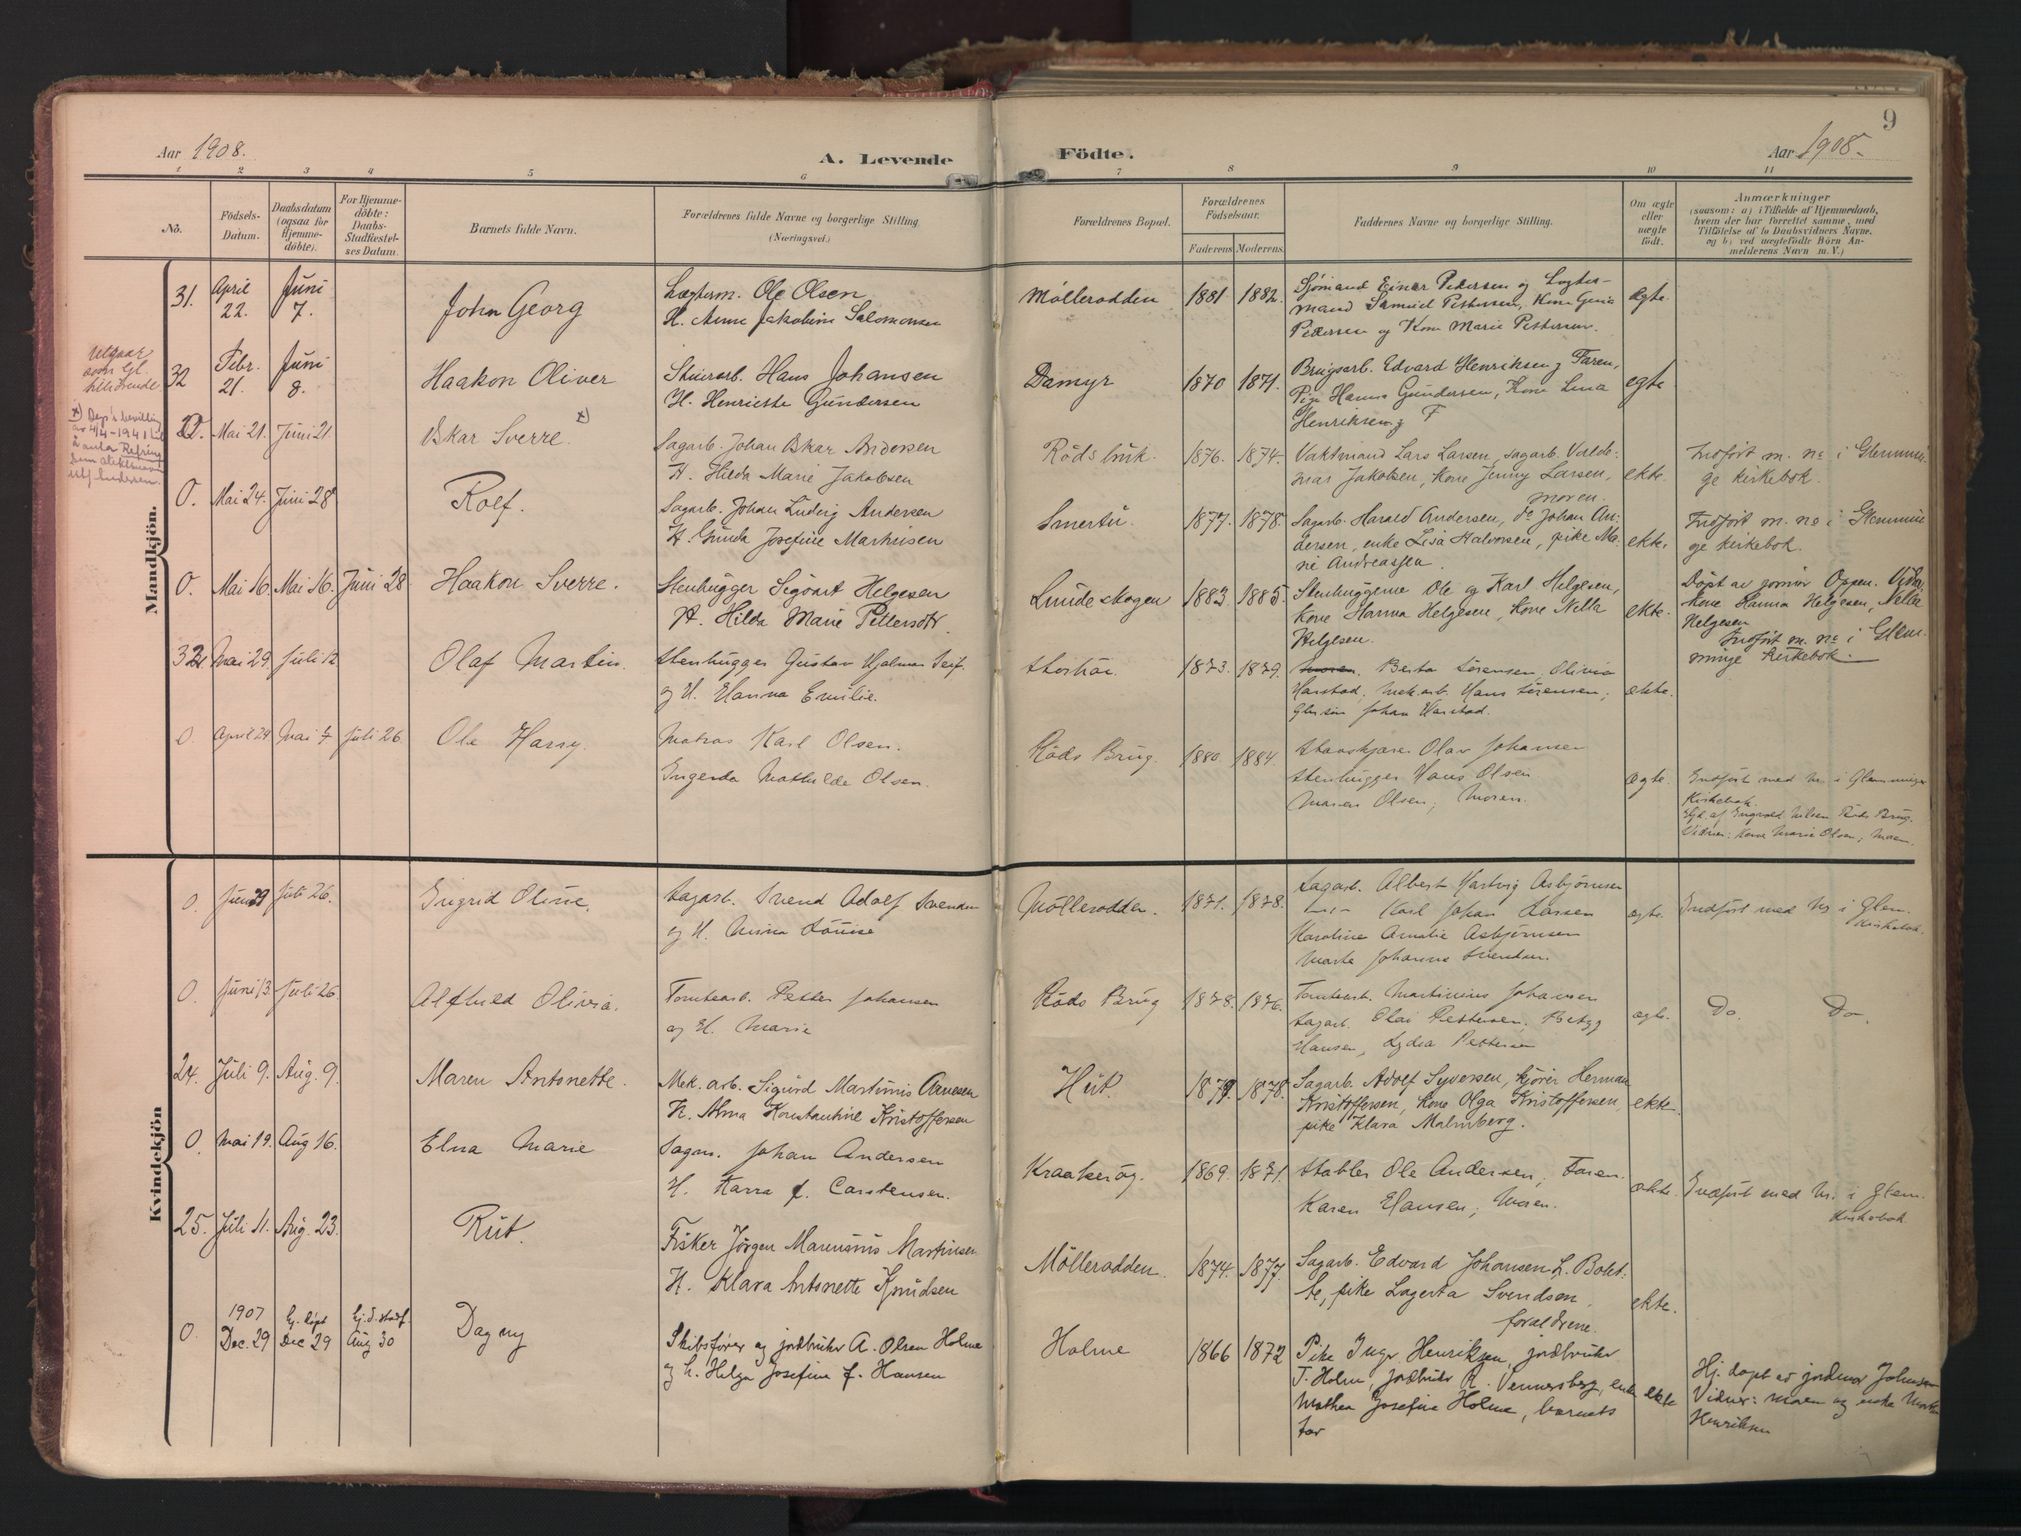 9
Aar 1908.
A. Levende Födte.
Aar 1908.
1 2 3 4 5 6 7 8 9 10 11
No.
Födsels-
Datum.
Daabsdatum
(ogsaa for
Hjemme-
döbte).
For Hjemme-
döbte:
Daabs-
Stadfæstel-
ses Datum.
Barnets fulde Navn.
Forældrenes fulde Navne og borgerlige Stilling
(Næringsvei.)
Forældrenes Bopæl.
Forældrenes
Födselsaar.
Faderens Moderens.
Faddernes Navne og borgerlige Stilling.
Om ægte
eller
uægte
født.
Anmærkninger
(saasom: a) i Tilfælde af Hjemmedaab,
hvem der har forrettet samme, med
Tilföielse af to Daabsvidners Navne,
og b) ved uægtefödte Börn An-
melderens Navn m. V.)
Mandkjön.
31. April 22. Juni 7. John Georg
Lægterm. Ole Olsen
H. Anne Jakobine Salomonsen
Møllerodden 1881 1882.
Sjømand Einar Pedersen og Lægter-
mand Samuel Pettersen, Kone
Pedersen og Kone Marie Pettersen.
ægte
Utgaar
som Gl.
32 Febr. 21. Juni 8. Haakon Oliver
Hans Johansen
H. Henriette Gundersen
Damyr 1870 1871.
Brugsarb. Edvard Henriksen, Faren,
Pige Hanna Gundersen, Kone Lina
Henriksen
egte
x) Dep's bevilling
av 4/4-1941 til
å anta Refring
som slektsnavn
22. Mai 21. Juni 21. Oskar Sverre. x)
Sagarb. Johan Oskar Andersen
H. Hilda Marie Jakobsen
Röds bruk. 1876. 1874.
Vaktmand Lars Larsen, sagarb. Valde-
mar Jakobsen, kone Jenny Larsen,
moren.
ekte.
Indført m. no i Glemmin-
ge kirkebok.
0. Mai 24. Juni 28. Rolf.
Sagarb. Johan Ludvig Andersen
H. Gunda Josefine Martinsen
Smertu. 1877. 1878.
Sagarb. Harald Andersen, do Johan An-
dersen, enke Lisa Halvorsen, pike Ma-
rie Andreassen
ekte.
Indført m. no i Glemmin-
ge kirkebok.
0. Mai 16. Mai 16. Juni 28 Haakon Sverre.
Stenhugger Sigvart Helgesen
H. Hilda Marie Pettersdtr.
Lundeskogen 1883. 1885.
Stenhuggerne Ole og Karl Helgesen,
kone Hanna Helgesen, kone Nella
Helgesen.
ekte.
Døpt av jormor Oppen. Vidn.
kone Hanna Helgesen, Nella
Helgesen
Indført m. no i Glem-
minge kirkebok.
32. Mai 29. Juli 12 Olaf Martin.
Stenhugger Gustav Hjalmar
og H. Hanna Emilie.
1873. 1879.
moren. Berta Sørensen, Olivia
Harstad, mek. arb. Hans Sørensen,
Johan Harstad.
ekte.
0. April 29 Mai 7 Juli 26. Ole Harry.
Matros Karl Olsen.
Ingerda Mathilde Olsen.
Röds Brug. 1880. 1884.
Olav Johansen
Stenhugger Hans Olsen
Maren Olsen; Moren.
ægte.
Indført med No. i Glemminge
Kirkebok.
Hjd. af Ingvald Nilsen Röds Brug.
Vidner: Kone Marie Olsen, Moren.
Kvindekjön
0. Juni Juli 26. Ingrid Oline.
Sagarb. Svend Adolf Svendsen
og H. Mina Louise
Møllerodden. 1871. 1878.
Sagarb. Albert Hartvig Asbjørnsen
—"— Karl Johan Larsen
Karoline Amalie Asbjørnsen
Marte Johanne Svendsen.
ægte.
Indført med No i Glem.
Kirkebok.
0. Juni 13. Juli 26. Alfhild Olivia.
Tomtearb. Petter Johansen
og H. Marie
Röds Brug 1878. 1876.
Tomtearb. Martinius Johansen
Sagarb. Olai Pettersen. Betzy
Hansen, Lydia Pettersen
ægte.
Do. Do.
24. Juli 9. Aug. 9. Maren Antonette.
Mek. arb. Sigurd Martinius Arnesen
H. Alma Konstantine Kristoffersen
Huk. 1879. 1878.
Sagarb. Adolf Syversen, kjører Herman
Kristoffersen, kone Olga Kristoffersen,
pike Klara Malmberg.
ekte.
0. Mai 19. Aug 16. Elna Marie
Sagarb. Johan Andersen
H. f. Carstensen.
Kraakerøg. 1869. 1871.
Stabler Ole Andersen; Faren.
Karen Hansen; Moren.
ekte.
Indført med No. i Glem.
Kirkebok.
25. Juli 11. Aug. 23. Rut.
Fisker Jørgen Marensius Martinsen
H. Klara Antonette Knudsen
Møllerodden. 1874. 1877.
Sagarb. Edvard Johansen L. Bakt-
te, pike Lagerta Svendsen,
foraldrene.
ekte.
0. 1907 Dec. 29 Hj. døpt Dec 29 Hj. d. stadf. Aug 30 Dagny
Skibsfører og jordbruker A. Olsen Holme
og h. Helga Josefine f. Hansen
Holme 1866 1872
Pike Inga Henriksen, jordbruker
T. Holm, jordbruker R. Vennersberg, enke
Mathea Josefine Holme, barnets
far
ekte
Hj. døpt av jordmor Johnsen
Vidner: moren og enke
Henriksen